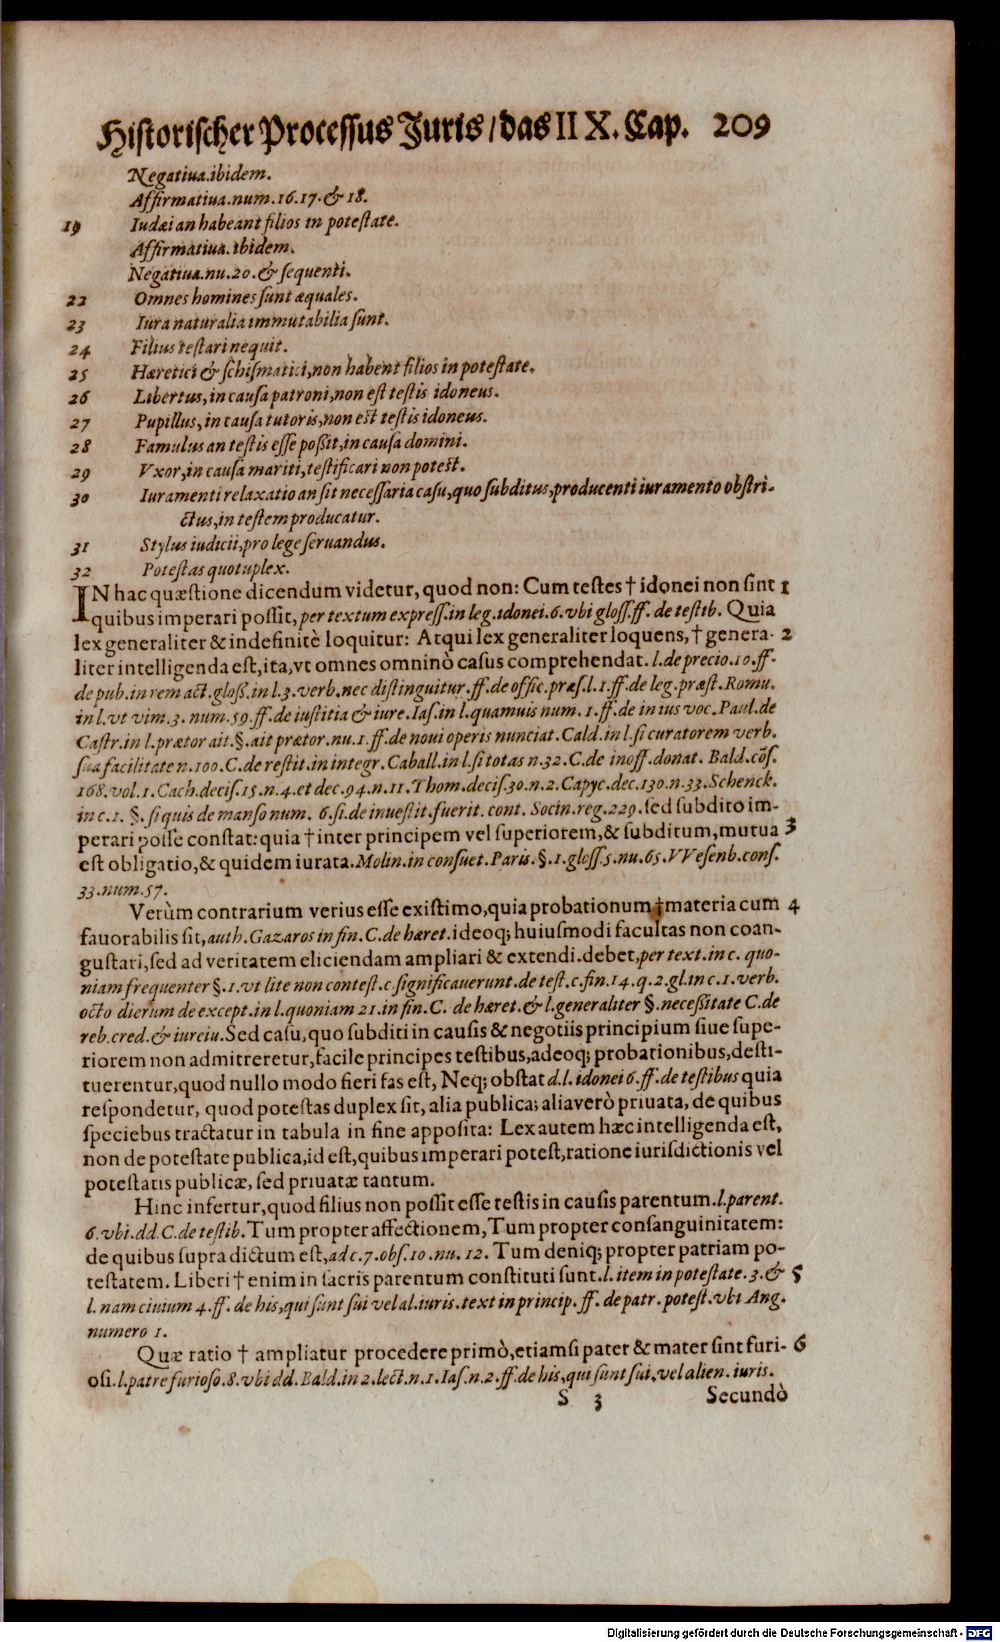 Historischer Processus Juris/das II X. Cap. 209
Negatiua.ibidem.
Affirmatiua.num.16.17.& 18.
19 Iudæi an habeant filios in potestate.
Affirmatiua.ibidem.
Negatiua.nu.20.& sequenti.
22 Omnes homines sunt æquales.
23 Iura naturalia immutabilia sunt.
24 Filius testari nequit.
25 Hæretici & schismatici,non habent filios in potestate.
26 Libertus,in causa patroni,non est testis idoneus.
27 Pupillus,in causa tutoris,non est testis idoneus.
28 Famulus an testis esse possit,in causa domini.
29 Vxor,in causa mariti,testificari non potest.
30 Iuramenti relaxatio an sit necessaria casu,quo subditus,producenti iuramento obstri-
ctus,in testem producatur.
31 Stylus iudicii,pro lege seruandus.
32 Potestas quotuplex.
IN hac quæstione dicendum videtur, quod non: Cum testes † idonei non sint 1
quibus imperari possit, per textum express.in leg.idonei.6.vbi gloss.ff. de testib. Quia
lex generaliter & indefinitè loquitur: Atqui lex generaliter loquens, † genera- 2
liter intelligenda est,ita,vt omnes omninò casus comprehendat. l.de precio.10.ff.
de pub.in rem act.gloss.in l.3.verb.nec distinguitur.ff.de offic.præs.l.1.ff.de leg.præst.Romu.
in l.vt vim.3. num.59.ff.de iustitia & iure.Ias.in l.quamuis num. 1.ff.de in ius voc.Paul.de
Castr.in l.prætor ait.§.ait prætor.nu.1.ff.de noui operis nunciat.Cald.in l.si curatorem verb.
sua facilitate n.100.C.de restit.in integr.Caball.in l.si totas n.32.C.de inoff.donat. Bald.cõs.
168.vol.1.Cach.decis.15.n.4.et dec.94.n.11.Thom.decis.30.n.2.Capyc.dec.130.n.33.Schenck.
in c.1. §.si quis de manso num. 6.si.de inuestit.fuerit.cont. Socin.reg.229.sed subdito im-
perari posse constat:quia † inter principem vel superiorem,& subditum,mutua 3
est obligatio,& quidem iurata.Molin.in consuet.Paris.§.1.gloss.5.nu.65.VVesenb.cons.
33.num.57.
Verùm contrarium verius esse existimo,quia probationum † materia cum 4
fauorabilis sit,auth.Gazaros in fin.C.de hæret.ideoq; huiusmodi facultas non coan-
gustari,sed ad veritatem eliciendam ampliari & extendi.debet,per text.in c. quo-
niam frequenter §.1.vt lite non contest.c.significauerunt.de test.c.fin.14.q.2.gl.in c.1.verb.
octo dierum de except.in l.quoniam 21.in fin.C. de hæret.& l.generaliter §.necessitate C.de
reb.cred.& iureiu.Sed casu,quo subditi in causis & negotiis principium siue supe-
riorem non admitteretur,facile principes testibus,adeoq; probationibus,desti-
tuerentur,quod nullo modo fieri fas est, Neq; obstat d.l.idonei 6.ff.de testibus quia
respondetur, quod potestas duplex sit, alia publica; alia verò priuata, de quibus
speciebus tractatur in tabula in fine apposita: Lex autem hæc intelligenda est,
non de potestate publica,id est,quibus imperari potest,ratione iurisdictionis vel
potestatis publicæ, sed priuatæ tantum.
Hinc infertur,quod filius non possit esse testis in causis parentum.l.parent.
6.vbi.dd.C.de testib.Tum propter affectionem,Tum propter consanguinitatem:
de quibus supra dictum est,ad c.7.obs.10.nu.12. Tum deniq; propter patriam po-
testatem. Liberi † enim in sacris parentum constituti sunt.l.item in potestate.3.& 5
l.nam ciuium 4.ff. de his,qui sunt sui vel al.iuris.text in princip.ff.de patr.potest.vbi Ang.
numero 1.
Quæ ratio † ampliatur procedere primò,etiamsi pater & mater sint furi- 6
osi.l.patre furioso.8.vbi dd.Bald.in 2.lect.n.1.Ias.n.2.ff.de his,qui sunt sui,vel alien.iuris.
S 3 Secundò
Digitalisierung gefördert durch die Deutsche Forschungsgemeinschaft - DFG